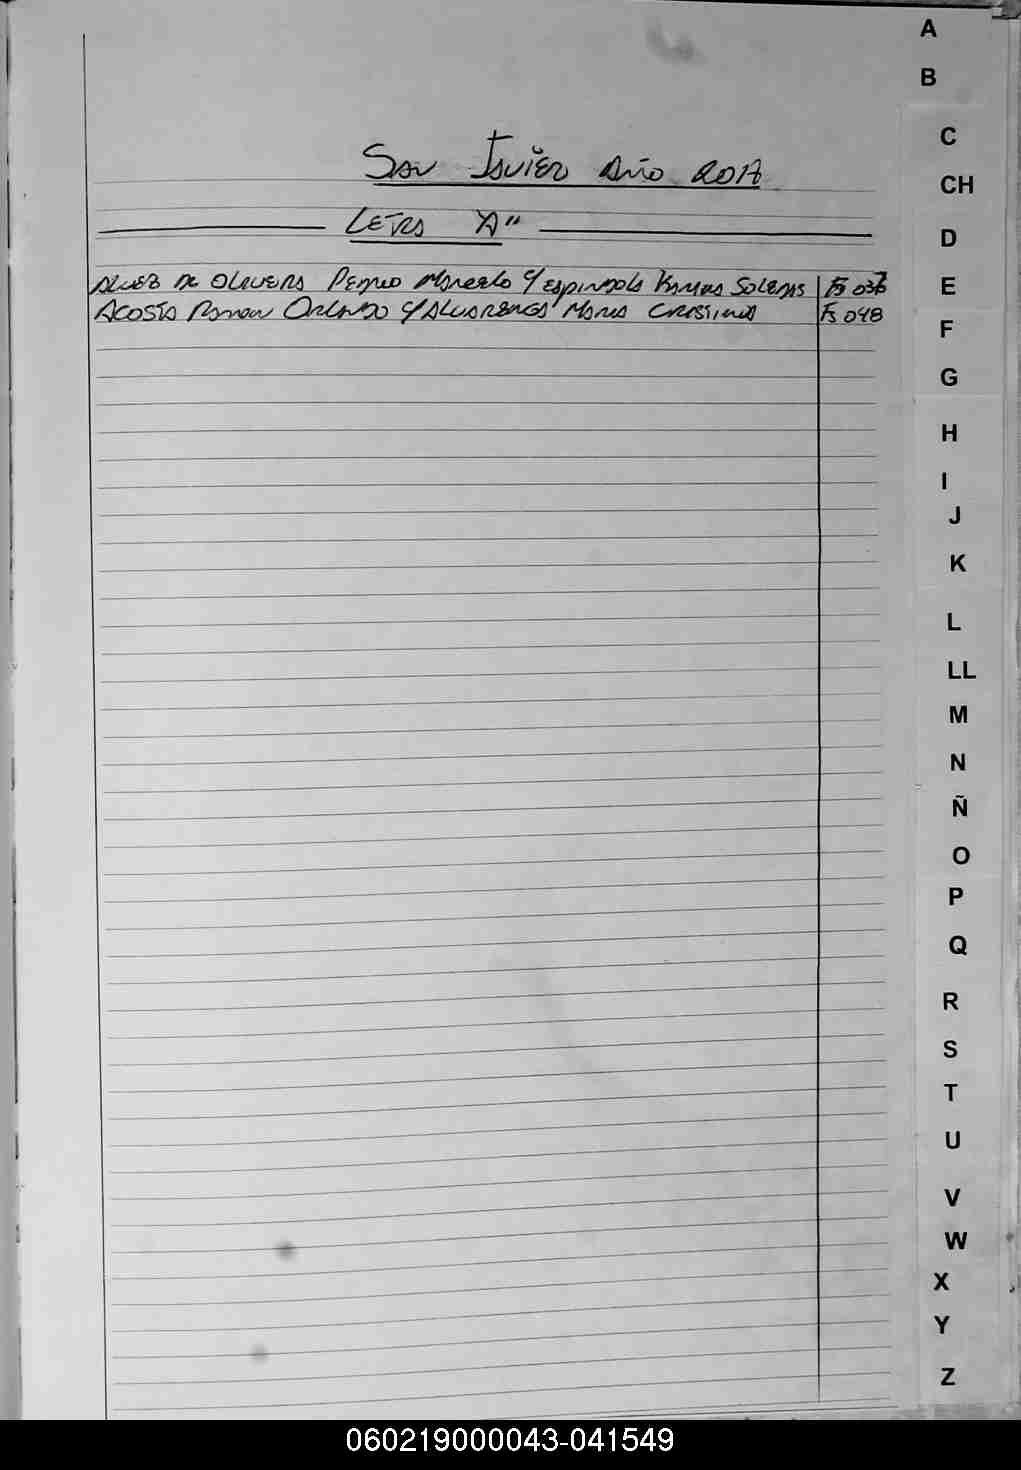 San Javier Año 2017
Letra "A"
Alvez de Olivera Pedro Marcelo C/ Espindola Soledad Fs 036
Acosta Ramon Orlando C/ Alvarenga Maria Cristina Fs 048
A
B
C
CH
D
E
F
G
H
I
J
K
L
LL
M
N
Ñ
O
P
Q
R
S
T
U
V
W
X
Y
Z
060219000043-041549